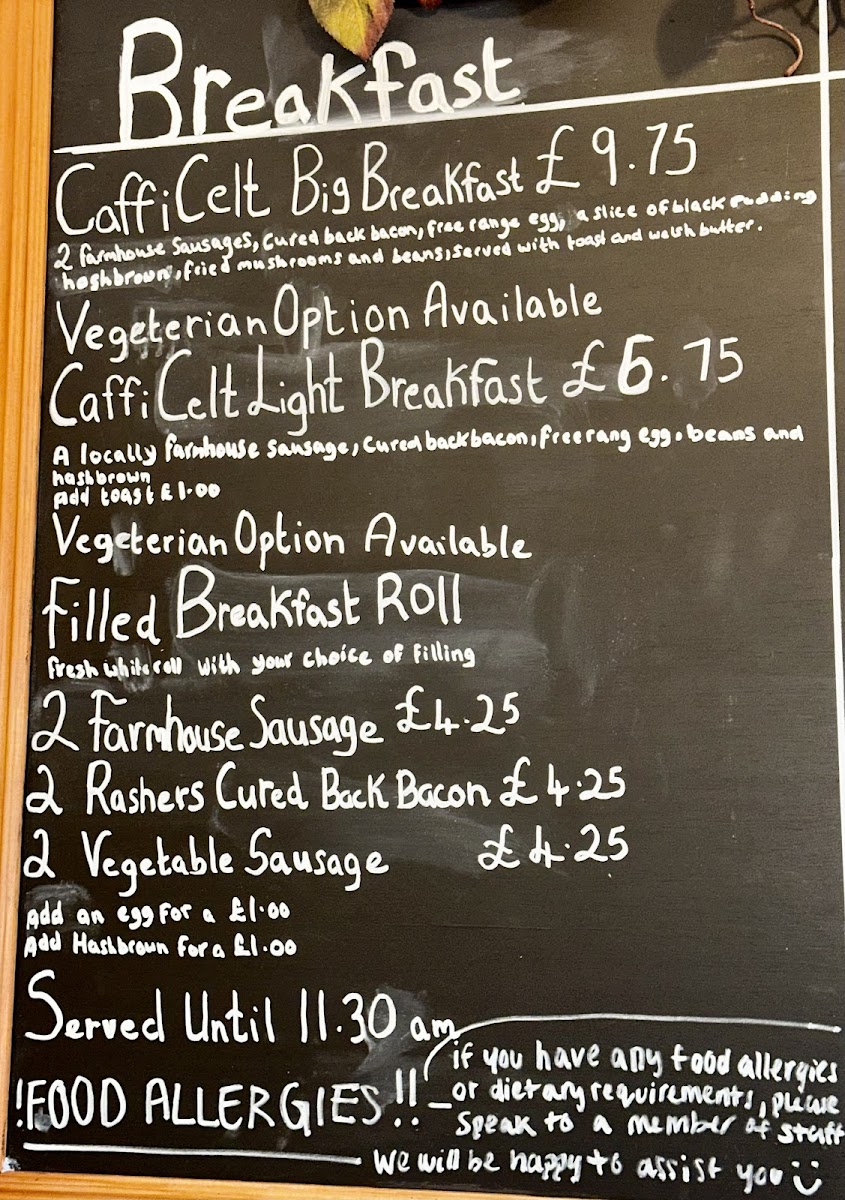 Breakfast
Caffi Celt Big Breakfast £9.75
2 farmhouse sausages, cured back bacon, free range egg, a slice of black pudding
hashbrown, fried mushrooms and beans, served with toast and welsh butter.
Vegeterian Option Available
Caffi Celt Light Breakfast £6.75
A locally farmhouse sausage, cured back bacon, free rang egg, beans and
hashbrown
Add toast £1.00
Vegeterian Option Available
Filled Breakfast Roll
fresh white roll with your choice of filling
2 Farmhouse Sausage £4.25
2 Rashers Cured Back Bacon £4.25
2 Vegetable Sausage £4.25
Add an egg for a £1.00
Add Hashbrown for a £1.00
Served Until 11.30 am
!FOOD ALLERGIES!!
if you have any food allergies
or dietary requirements, please
speak to a member of staff
we will be happy to assist you ü